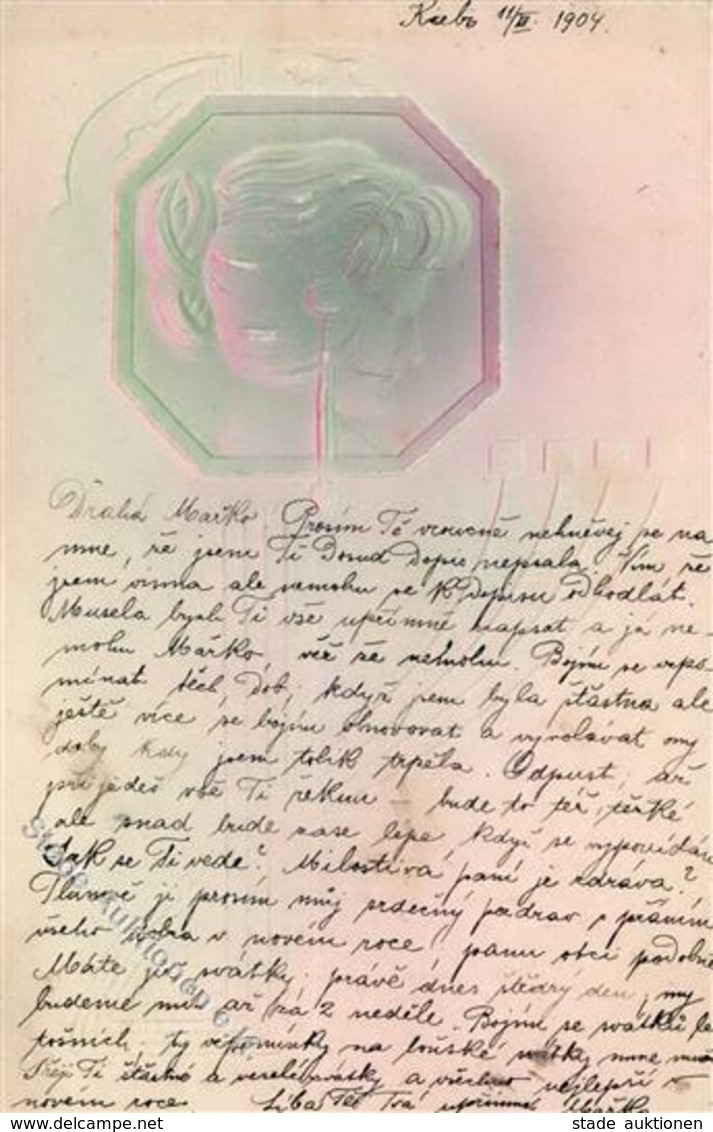 Kiebs 11/XII. 1904.
Drahá Mařko. Prosím Tě vroucně nehněvej se na
mne, že jsem Ti Dosud Dopis nepsala. Vím že
jsem vinna ale nemohu se k Dopisu odhodlát.
Musela bych Ti vše upřímně napsat a já ne-
mohu Mařko, věř že nemohu. Bojím se vzpo-
mínat těch Dob, když jsem byla šťastna ale
ještě více se bojím obnovovat a vyvolávat ony
doby kdy jsem tolik trpěla. Odpusť, až
přijedeš vše Ti řeknu – bude to též těžké
ale snad bude zase lépe, když se vypovídám
Jak se Ti vede? Milostivá paní je zdráva?
Tlumoč jí prosím můj srdečný pozdrav s přáním
všeho dobra v novém roce, panu otci podobně
Máte již svátky, právě dnes štědrý den, my
budeme mít až za 2 neděle. Bojím se svátků le
tošních. Ty vzpomínky na loňské svátky mne
Přeji Ti šťastné a veselé svátky a všechno nejlepší v
novém roce. Líbá Tě Tvá upřímná Mařka
Stade Auktionen
stade auktionen